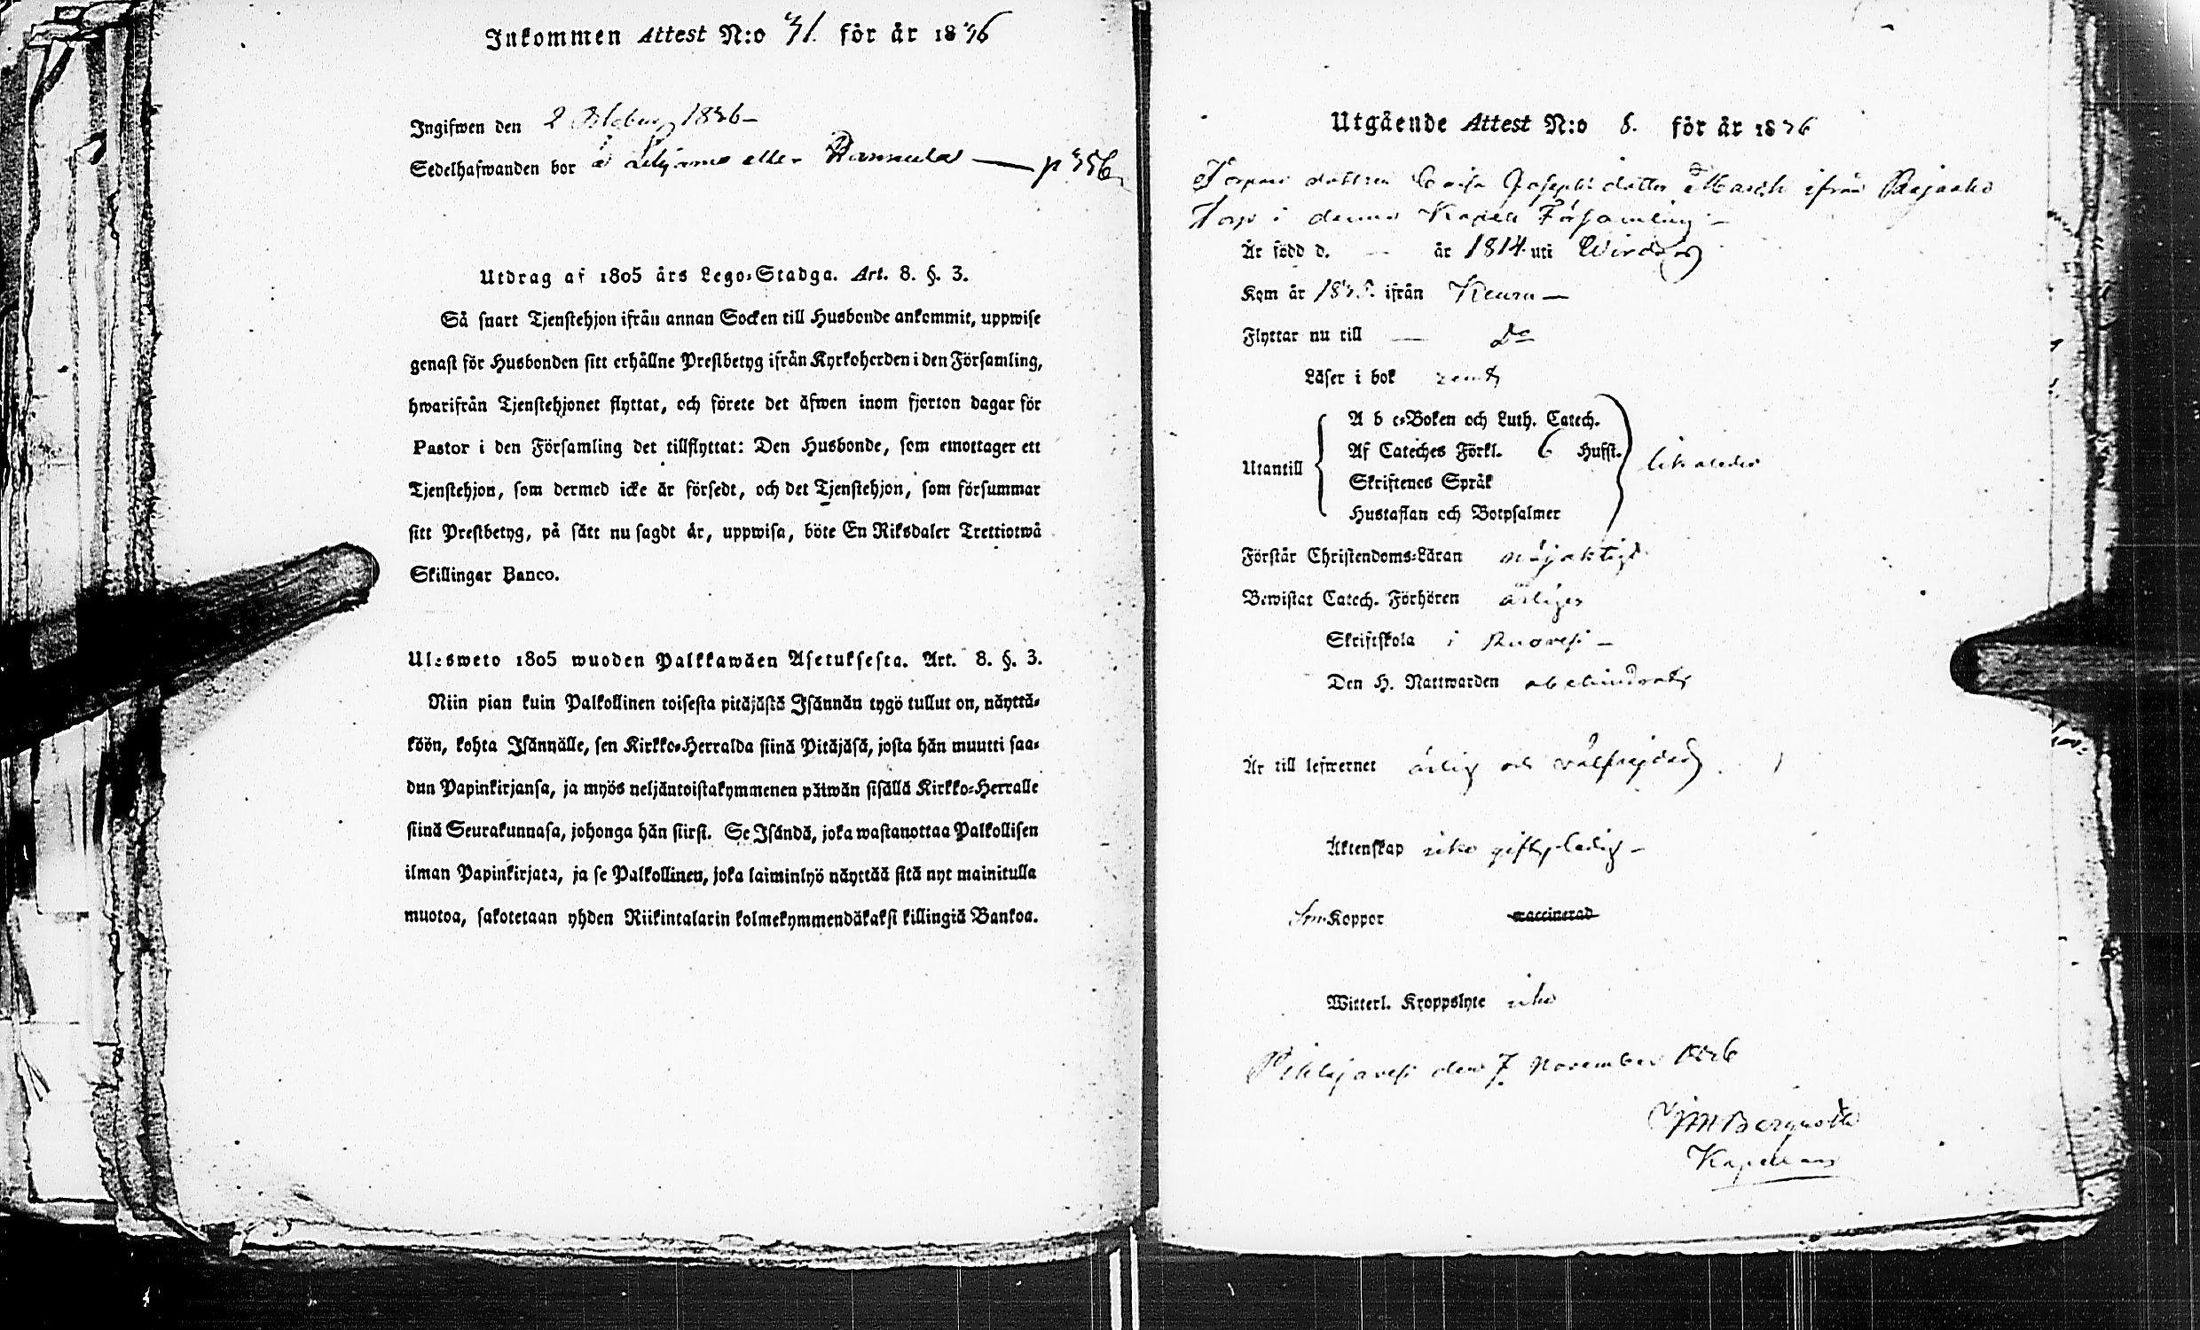 Inkommen Attest N:o 31. för år 1836
Ingifwen den 2 1836
Sedelhafwanden bor å eller p 356
Utdrag af 1805 års Lego-Stadga. Art. 8. §. 3.
Så snart Tjenstehjon ifrån annan Socken till Husbonde ankommit, uppwise
genast för Husbonden sitt erhållne Prestbetyg ifrån Kyrkoherden i den Församling,
hwarifrån Tjenstehjonet flyttat, och förete det äfwen inom fjorton dagar för
Pastor i den Församling det tillflyttat: Den Husbonde, som emottager ett
Tjenstehjon, som dermed icke är försedt, och det Tjenstehjon, som försummar
sitt Prestbetyg, på sätt nu sagdt är, uppwisa, böte En Riksdaler Trettiotwå
Skillingar Banco.
Ulosweto 1805 wuoden Palkkawäen Asetuksesta. Art. 8. §. 3.
Niin pian kuin Palkollinen toisesta pitäjästä Isännän tygö tullut on, näyttä-
köön, kohta Isännälle, sen Kirkko-Herralda siinä Pitäjäsä, josta hän muutti saa-
dun Papinkirjansa, ja myös neljäntoistakymmenen päiwän sisällä Kirkko-Herralle
siinä Seurakunnasa, johonga hän siirst. Se Isändä, joka wastanottaa Palkollisen
ilman Papinkirjata, ja se Palkollinen, joka laiminlyö näyttää sitä nyt mainitulla
muotoa, sakotetaan yhden Riikintalarin kolmekymmendäkaksi killingiä Bankoa.
Utgående Attest N:o 8. för år 1836
Torpare dottren Caisa Josephs dotter ifrån
Torp i denna Kapell Församling
Är född d. — år 1814 uti Wirdois
Kom år ifrån Keuru
Flyttar nu till — Do
Läser i bok rent
Utantill
A b c-Boken och Luth. Catech.
Af Cateches Förkl. 6 Hufst.
Skriftenes Språk
Hustaflan och Botpsalmer
likaledes
Förstår Christendoms-Läran nöjaktigt
Bewistat Catech. Förhören årligen
Skriftskola i Ruovesi
Den H. Nattwarden obehindrat
Är till lefwernet ärlig och välfrejdad
Äktenskap icke gift, ledig
Koppor vaccinerad
Witterl. Kroppslyte icke
Pihlajavesi den 7 November 1836
Kapellan